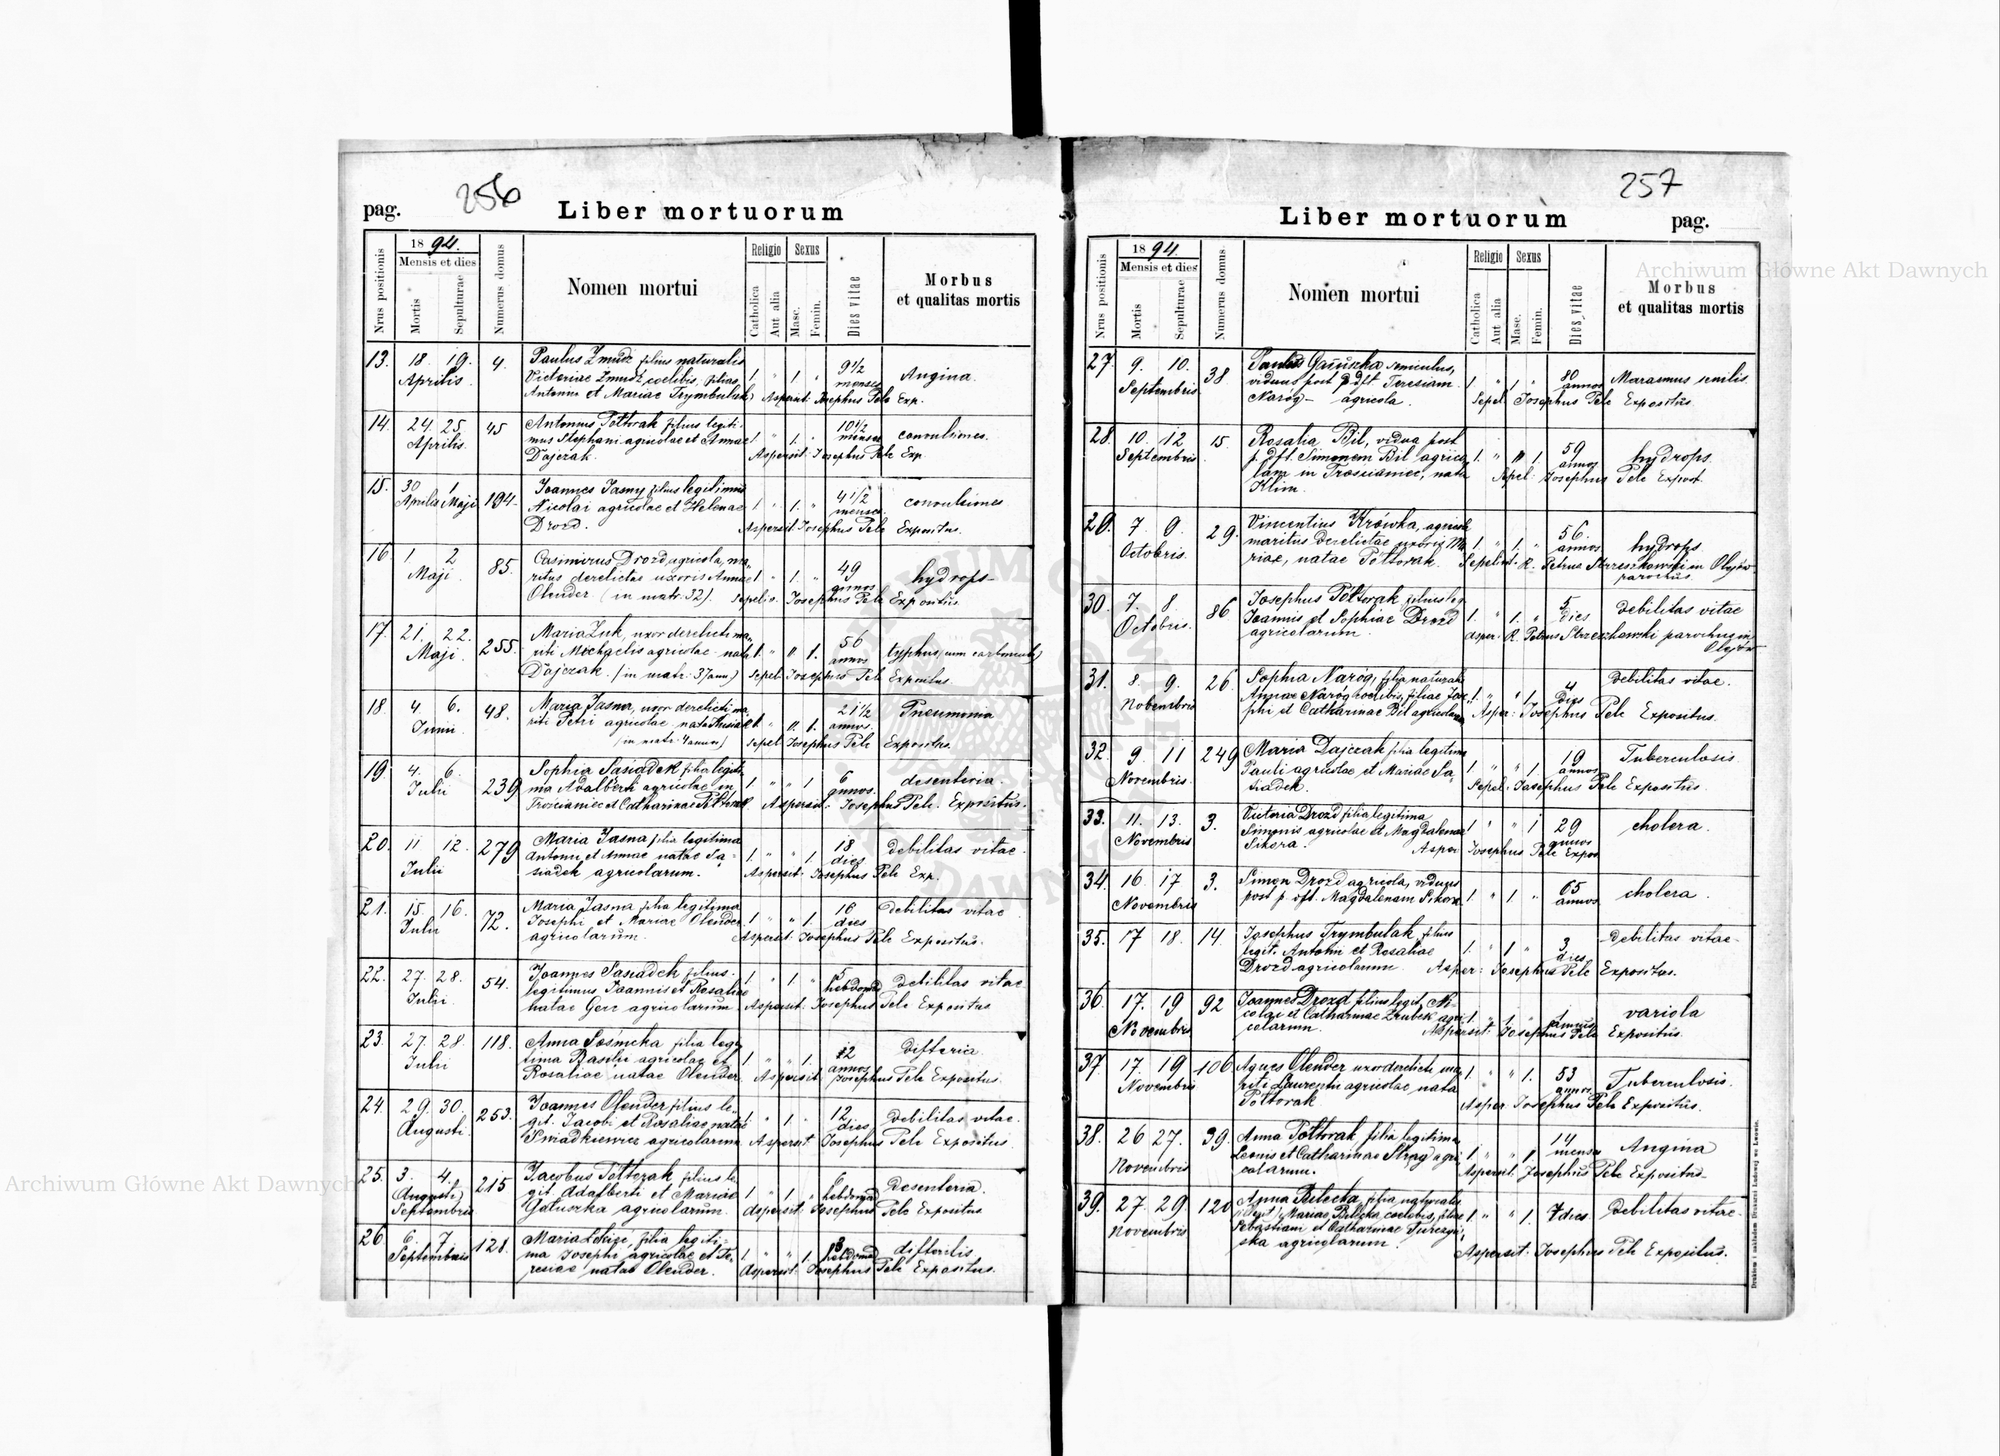 256
pag.
Liber mortuorum
Nrus positionis
1894.
Mensis et dies
Mortis
Sepulturae
Numerus domus
Nomen mortui
Religio
Catholica
Aut alia
Sexus
Masc.
Femin.
Dies vitae
Morbus
et qualitas mortis
13. 18. 19. 4. Paulus Żmudź filius naturalis 9 1/2
Aprilis Victoriae Żmudź coelibis, filiae 1 " 1. menses Angina.
Antonii et Mariae Trymbulak Aspersit Josephus Pelc Exp.
14. 24. 25. 45 Antonius Półtorak filius legiti- 10 1/2
Aprilis. mus Stephani agricolae et Annae 1 " 1. " menses convulsiones.
Dajczak. Aspersit. Josephus Pelc Exp.
15. 30 1 194 Joannes Jasny filius legitimus 4 1/2
Aprilis Maji Nicolai agricolae et Helenae 1 " 1. " menses convulsiones
Drozd. Aspersit. Josephus Pelc Expositus.
16. 1. 2 85. Casimirus Drozd, agricola, ma- 49
Maji. ritus derelictae uxoris Annae 1 " 1. " annos hydrops
Olender (in matr. 32). Sepeliv. Josephus Pelc Expositus
17. 21. 22. 255. Maria Żuk, uxor derelicti ma- 56
Maji. riti Michaelis agricolae nata 1. " " 1. annos typhus
Dajczak. (in matr. 37 ann) Sepel. Josephus Pelc Expositus
18. 4. 6. 48. Maria Jasna, uxor derelicti ma- 21 1/2
Junii riti Petri agricolae nata 1. " 1. annos Pneumonia
(in matr. 4 ann) Sepel Josephus Pelc Expositus.
19. 4. 6. 239 Sophia Sasiadek filia legiti- 6
Julii ma Adalberti agricolae in 1 " " 1 annos. desenteria.
Trościaniec et Catharinae Półtorak Aspersit. Josephus Pelc. Expositus.
20. 11 12. 279 Maria Jasna filia legitima 18
Julii Antonii et Annae natae Sa- 1. " " 1. dies debilitas vitae.
siadek agricolarum. Aspersit. Josephus Pelc Exp.
21. 15. 16. 72. Maria Jasna filia legitima 16
Julii Josephi et Mariae Olender 1. " " 1. dies debilitas vitae
agricolarum. Aspersit. Josephus Pelc Expositus.
22. 27. 28. 54. Joannes Sasiadek filius 5
Julii. legitimus Joannis et Rosaliae 1 " 1 " hebdomad debilitas vitae
natae Gerc agricolarum Aspersit Josephus Pelc Expositus
23. 27. 28. 118. Anna Sośnicka filia legi- 12
Julii tima Basilii agricolae et 1 " " 1. annos difteria.
Rosaliae natae Olender. Aspersit Josephus Pelc Expositus.
24. 29. 30. 253. Joannes Olender filius le- 12.
Augusti. git. Jacobi et Rosaliae natae 1 " 1 " dies debilitas vitae.
agricolarum Aspersit Josephus Pelc Expositus.
25. 3. 4. 215 Jacobus Półtorak filius le-
Augusti git. Adalberti et Mariae 1 " 1 " hebdomad Desenteria.
Septembris Gałuszka agricolarum. Aspersit Josephus Pelc Expositus
26 6. 7. 128. Maria filia legiti- 8
Septembris ma Josephi agricolae et Te- 1 " " 1. hebdomad difterilis
resiae natae Olender. Aspersit. Josephus Pelc Expositus.
257
Liber mortuorum
pag.
Nrus positionis
1894.
Mensis et dies
Mortis
Sepulturae
Numerus domus
Nomen mortui
Religio
Catholica
Aut alia
Sexus
Masc.
Femin.
Dies vitae
Morbus
et qualitas mortis
27 9. 10. 38 Paulus semiculus, 80
Septembris viduus post p. dft Teresiam 1. " 1 " annos Marasmus senilis.
Naróg — agricola. Sepel. Josephus Pelc Expositus
28. 10. 12 15. Rosalia Bil, vidua post 59
Septembris p. dft. Simonem Bil agrico- 1. " " 1. annos hydrops.
lam in Trościaniec, nata Sepel. Josephus Pelc Exposit
Klim.
29. 7. 9. 29. Vincentius Krówka, agricola 56.
Octobris. maritus derelictae uxoris Ma- 1. " 1. " annos hydrops
riae, natae Półtorak. Sepelivit R. Petrus Strzeszkowski in Olejów
parochus.
30. 7. 8. 86 Josephus Półtorak filius leg. 5
Octobris. Joannis et Sophiae Drozd 1. " 1. " dies debilitas vitae
agricolarum. Asper. R. Petrus Strzeszkowski parochus in
Olejów
31. 8. 9. 26. Sophia Naróg, filia naturalis 4 debilitas vitae.
Nobembris Annae Naróg coelibis, filiae Jose- 1. " " 1. dies
phi et Catharinae Bil agricolarum Asper: Josephus Pelc Expositus.
32. 9. 11 249 Maria Dajczak filia legitima 19 Tuberculosis
Novembris. Pauli agricolae et Mariae Sa- 1. " " 1. annos
siadek. Sepel. Josephus Pelc Expositus.
33. 11. 13. 3. Victoria Drozd filia legitima 29 cholera.
Novembris Simonis agricolae et Magdalenae 1. " " 1 annos
Sikora. Asper Josephus Pelc Expos
34. 16 17 3. Simon Drozd agricola, viduus 65 cholera.
Novembris post p. dft. Magdalenam Sikora 1. " 1. " annos
35. 17 18. 14. Josephus Trymbulak filius 3 debilitas vitae.
legit. Antonii et Rosaliae 1. " 1 " dies
Drozd agricolarum Asper: Josephus Pelc Expositus.
36. 17. 19 92 Joannes Drozd filius legit. Ni- variola
Novembris colai et Catharinae agri- 1. " 1. " annus
colarum. Aspersit. Josephus Pelc Expositus.
37 17. 19 106 Agnes Olender uxor derelicti ma- 53 Tuberculosis.
Novembris riti Laurentii agricolae nata 1. " " 1. annos
Półtorak Asper. Josephus Pelc Expositus.
38. 26 27. 39. Anna Półtorak filia legitima 14 Angina
Novembris Leonis et Catharinae agri- 1 " " 1 menses
colarum. Aspersit. Josephus Pelc Expositus
39. 27. 29. 120 Anna Bilecka, filia naturalis 7 dies. debilitas vitae.
Novembris Mariae Bilecka, coelibis, filiae 1. " " 1.
Sebastiani et Catharinae
ska agricolarum. Aspersit. Josephus Pelc Expositus.
Drukiem i nakładem Drukarni Ludowej we Lwowie.
Archiwum Główne Akt Dawnych
Archiwum Główne Akt Dawnych